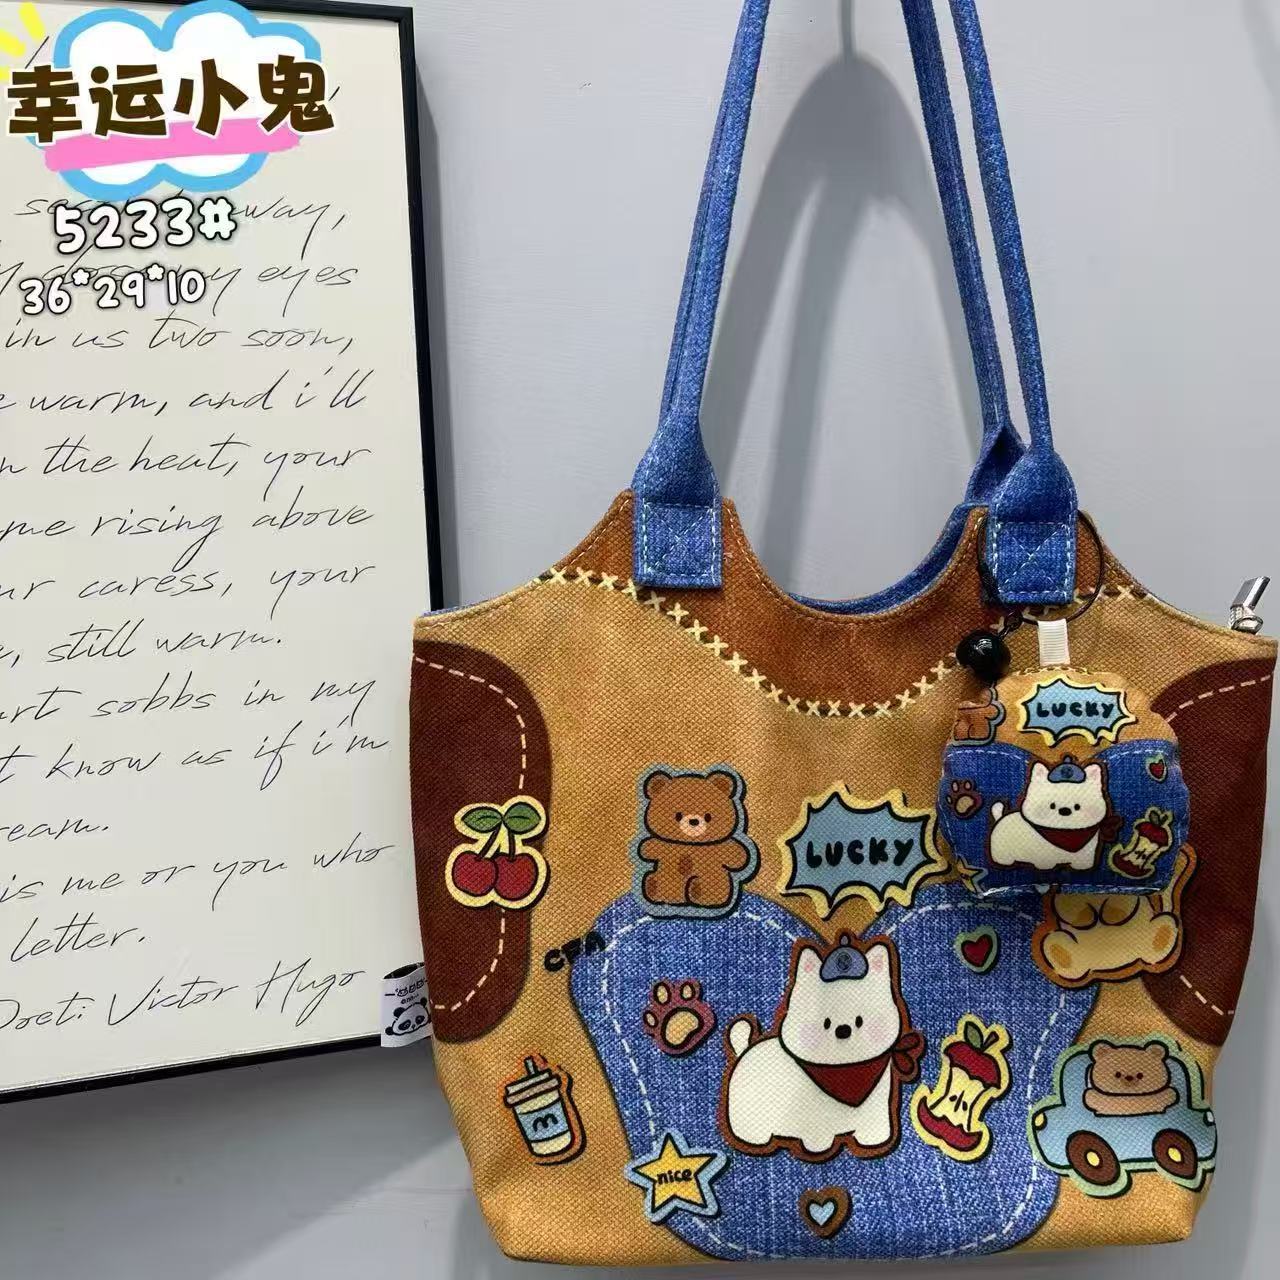 幸运小鬼
5233#
36*29*10
way,
eyes
in us two soon,
warm, and i'll
in the heat, your
rising above
caress, your
still warm.
sobbs in my
know as if i'm
ream.
is me or you who
letter.
Poet: Victor Hugo
LUCKY
LUCKY
CFA
m
nice